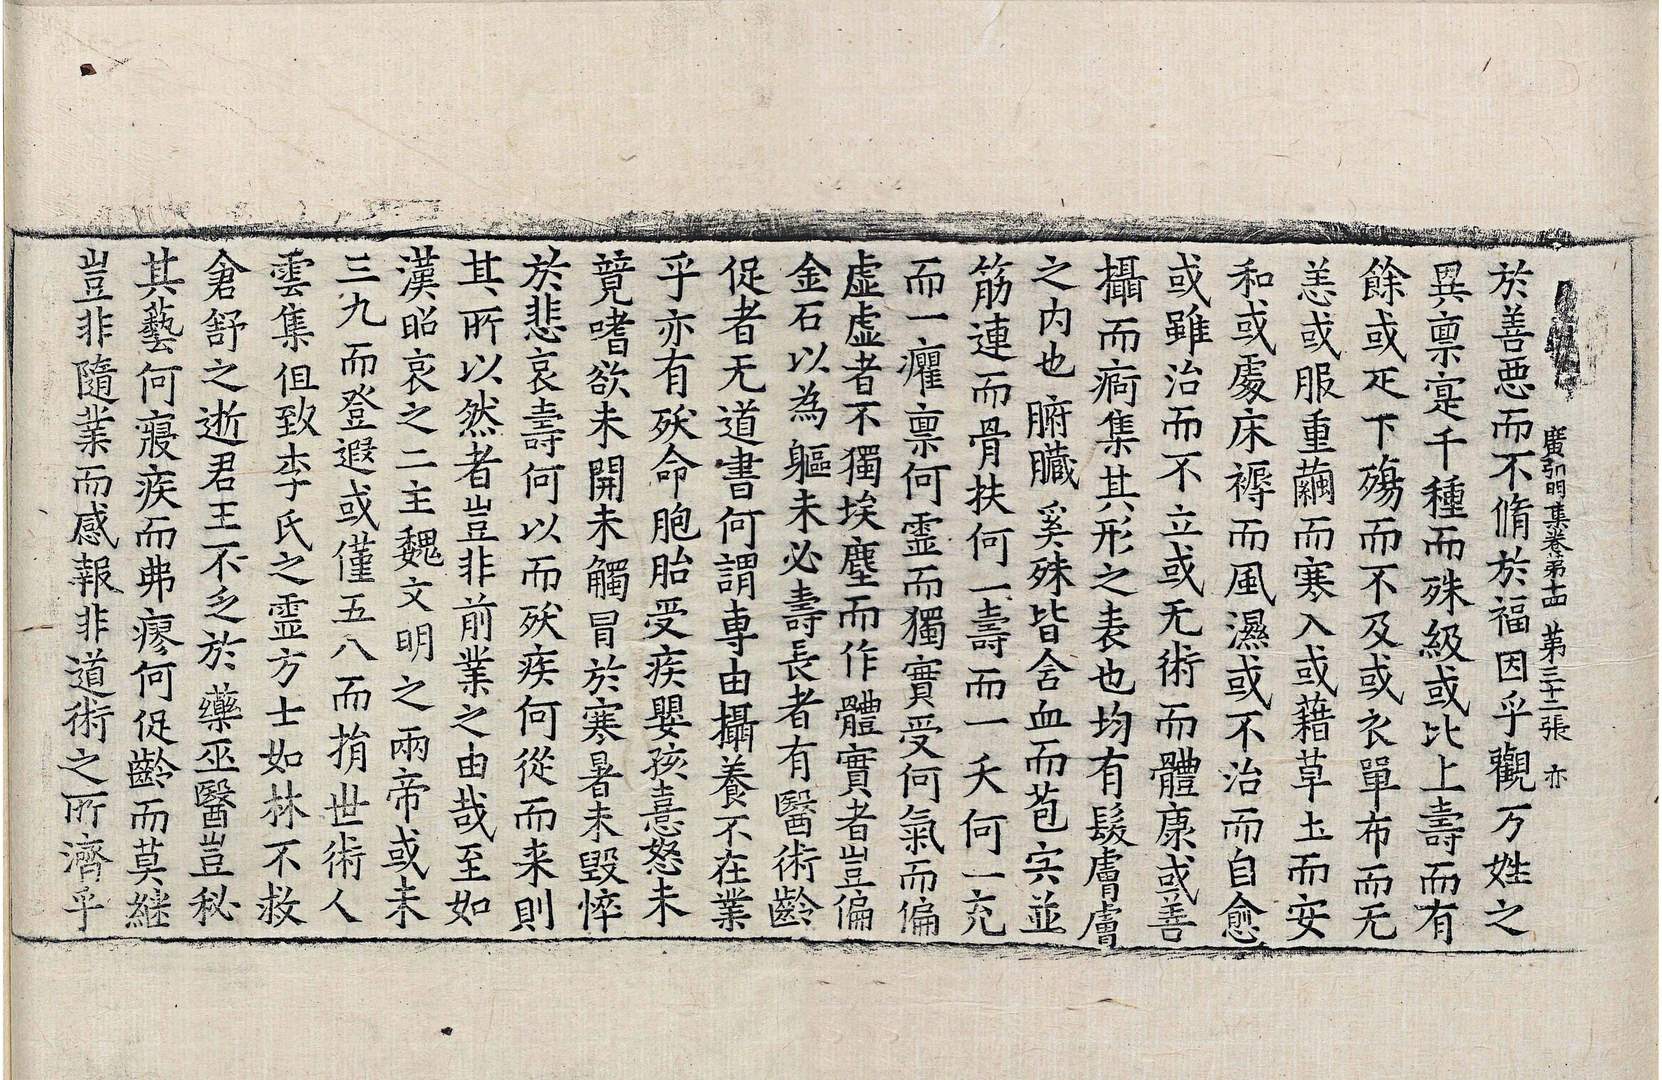 廣弘明集卷第十四 第三十二張 亦
於善惡而不脩於福因乎觀万姓之
異稟寔千種而殊級或比上壽而有
餘或疋下殤而不及或衣單布而无
恙或服重繭而寒入或藉草土而安
和或處床褥而風濕或不治而自愈
或雖治而不立或无術而體康或善
攝而痾集其形之表也均有髮膚膚
之内也腑臟奚殊皆含血而苞宍並
筋連而骨扶何一壽而一夭何一充
而一癯稟何靈而獨實受何氣而偏
虛虛者不獨埃塵而作體實者豈偏
金石以為軀未必壽長者有醫術齡
促者无道書何謂專由攝養不在業
乎亦有殀命胞胎受疾嬰孩憙怒未
競嗜欲未開未觸冒於寒暑未毀悴
於悲哀壽何以而殀疾何從而来則
其所以然者豈非前業之由哉至如
漢昭哀之二主魏文明之兩帝或未
三九而登遐或僅五八而捐世術人
雲集但致李氏之靈方士如林不救
倉舒之逝君王不乏於藥巫醫豈秘
其藝何寢疾而弗瘳何促齡而莫継
豈非隨業而感報非道術之所濟乎